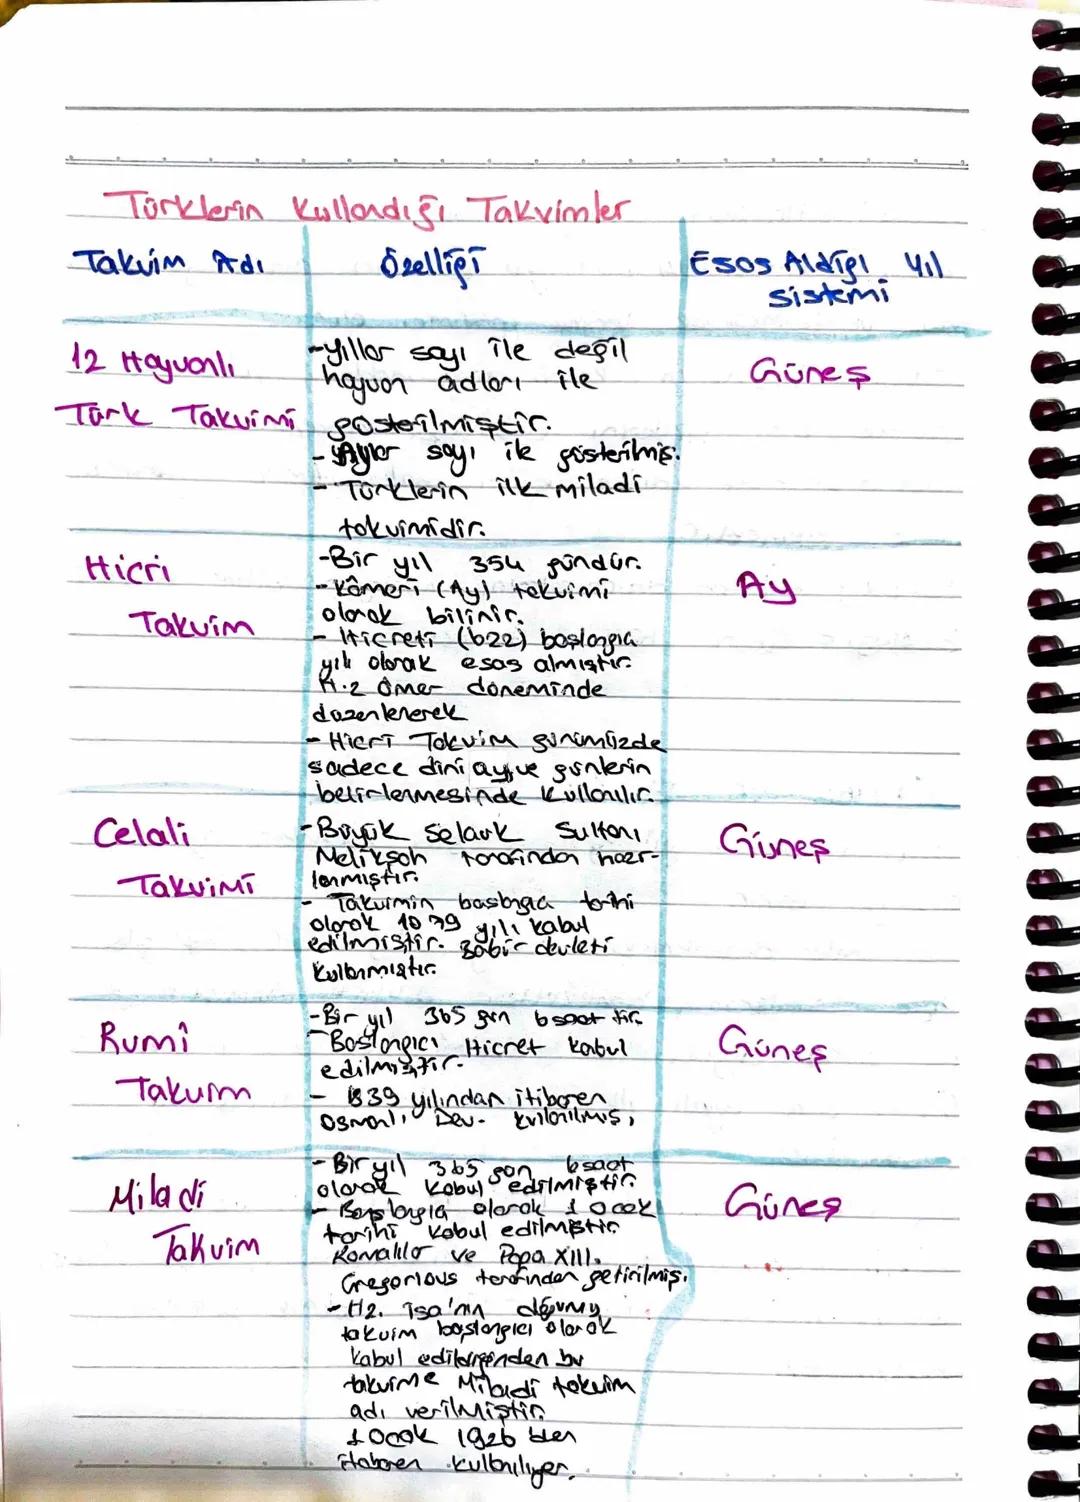 Türklerin Kullandığı Takvimler
Takvim Adı
Özelliği
Esas Aldığı Yıl
sistemi
12 Hayvanlı
Türk Takvimi
-Yıllar sayı ile değil
hayvan adları ile
gösterilmiştir.
-Aylar sayı ile gösterilmiş.
- Türklerin ilk miladi
takvimidir.
Güneş
Hicri
Takvim
-Bir yıl 354 gündür.
-Kâmeri (Ay) takvimi
olarak bilinir.
- Hicreti (622) başlangıç
yılı olarak esas almıştır.
H.z Ömer döneminde
düzenlenerek
- Hicri Takvim günümüzde
sadece dini ay ve günlerin
belirlenmesinde kullanılır.
Ay
Celali
Takvimi
-Büyük Selçuk Sultanı
Melikşah tarafından hazır-
lanmıştır.
- Takvimin başlangıç tarihi
olarak 1079 yılı kabul
edilmiştir. Babür devleti
kullanmıştır.
Güneş
Rumî
Takvim
-Bir yıl 365 gün 6 saat tir.
-Başlangıcı Hicret kabul
edilmiştir.
- 1839 yılından itibaren
Osmanlı Dev. kullanılmış,
Güneş
Miladi
Takvim
-Bir yıl 365 gün 6 saat
olarak kabul edilmiştir.
- Başlangıç olarak 1 Ocak
tarihi kabul edilmiştir.
Romalılar ve Papa XIII.
Gregorious tarafından getirilmiş.
-Hz. İsa'nın doğumu
takvim başlangıcı olarak
kabul edildiğinden bu
takvime Miladi takvim
adı verilmiştir.
1 Ocak 1926 'dan
itibaren kullanılıyor.
Güneş